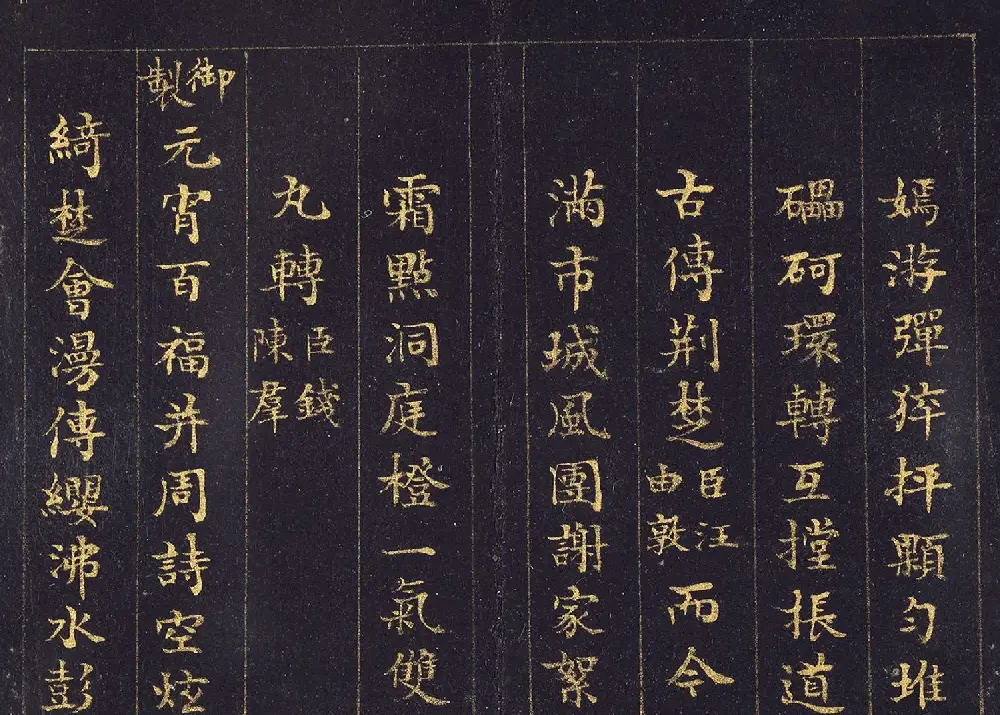 嫣游彈猝抨顆勻堆
礧砢環轉互摚掁道
古傳荆楚臣汪由敦而今
滿市城風團謝家絮
霜點洞庭橙一氣雙
丸轉臣錢陳羣
御製元宵百福并周詩空炫
綺楚會漫傳纓沸水彭